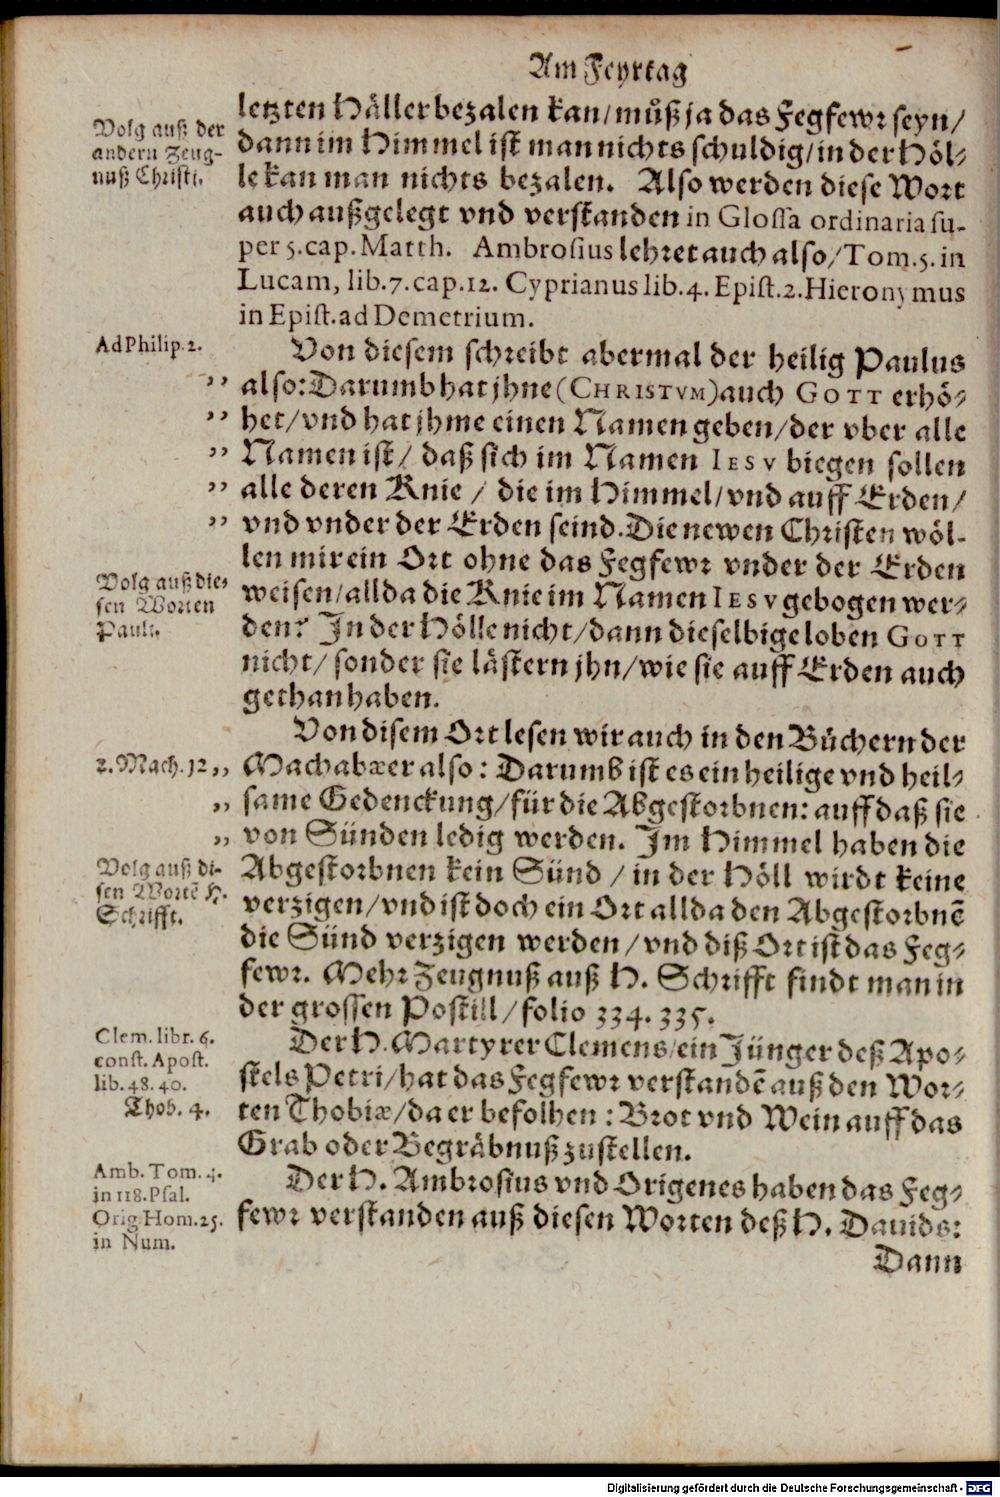 Am Feyrtag
letzten Hällerbezalen kan/můß ja das Fegfewr seyn/
Volg auß der
andern Zeug-
nuß Christi.
dann im Himmel ist man nichts schuldig/in der Höl-
le kan man nichts bezalen. Also werden diese Wort
auch außgelegt vnd verstanden in Glossa ordinaria su-
per 5.cap.Matth. Ambrosius lehret auch also/Tom.5.in
Lucam, lib.7.cap.12. Cyprianus lib.4. Epist.2.Hieronymus
in Epist.ad Demetrium.
Ad Philip.2.
Von diesem schreibt abermal der heilig Paulus
,, also:Darumb hat jhne (CHRISTVM) auch GOTT erhö-
,, het/vnd hat jhme einen Namen geben/der vber alle
,, Namen ist/ daß sich im Namen IESV biegen sollen
,, alle deren Knie / die im Himmel/vnd auff Erden/
,, vnd vnder der Erden seind.Die newen Christen wöl-
len mir ein Ort ohne das Fegfewr vnder der Erden
Volg auß die-
sen Worten
Pauli.
weisen/allda die Knie im Namen IESV gebogen wer-
den? In der Hölle nicht/dann dieselbige loben GOTT
nicht/ sonder sie lästern jhn/wie sie auff Erden auch
gethan haben.
Von disem Ort lesen wir auch in den Büchern der
2.Mach.12,, Machabæer also: Darumb ist es ein heilige vnd heil-
,, same Gedenckung/für die Abgestorbnen: auff daß sie
,, von Sünden ledig werden. Im Himmel haben die
Volg auß di-
sen Wortē H.
Schrifft.
Abgestorbnen kein Sünd / in der Höll wirdt keine
verzigen/vnd ist doch ein Ort allda den Abgestorbnē
die Sünd verzigen werden/vnd diß Ort ist das Feg-
fewr. Mehr Zeugnuß auß H. Schrifft findt man in
der grossen Postill/folio 334. 335.
Clem. libr. 6.
const. Apost.
lib. 48. 40.
Thob. 4.
Der H. Martyrer Clemens/ein Jünger deß Apo-
stels Petri/hat das Fegfewr verstandē auß den Wor-
ten Thobiæ/da er befolhen: Brot vnd Wein auff das
Grab oder Begräbnuß zustellen.
Amb. Tom. 4.
in 118.Psal.
Orig Hom.25.
in Num.
Der H. Ambrosius vnd Origenes haben das Feg-
fewr verstanden auß diesen Worten deß H. Dauids:
Dann
Digitalisierung gefördert durch die Deutsche Forschungsgemeinschaft - DFG